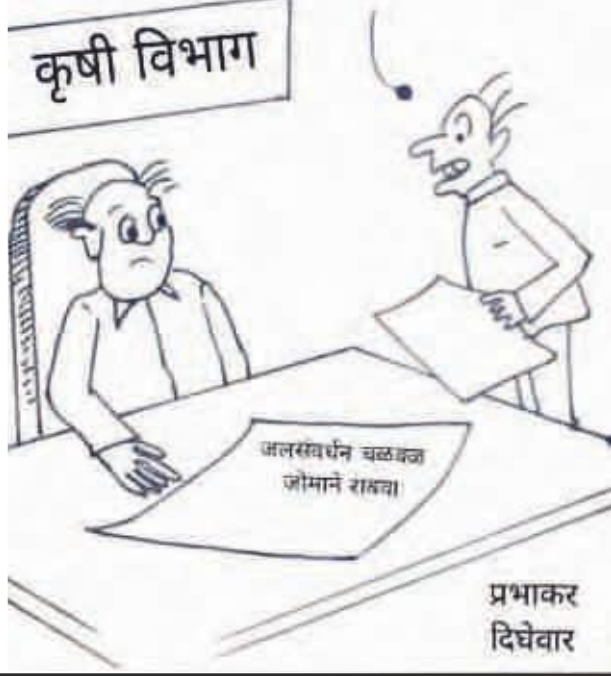 कृषी विभाग
जलसंवर्धन चळवळ
जोमाने राबवा
प्रभाकर
दिघेवार